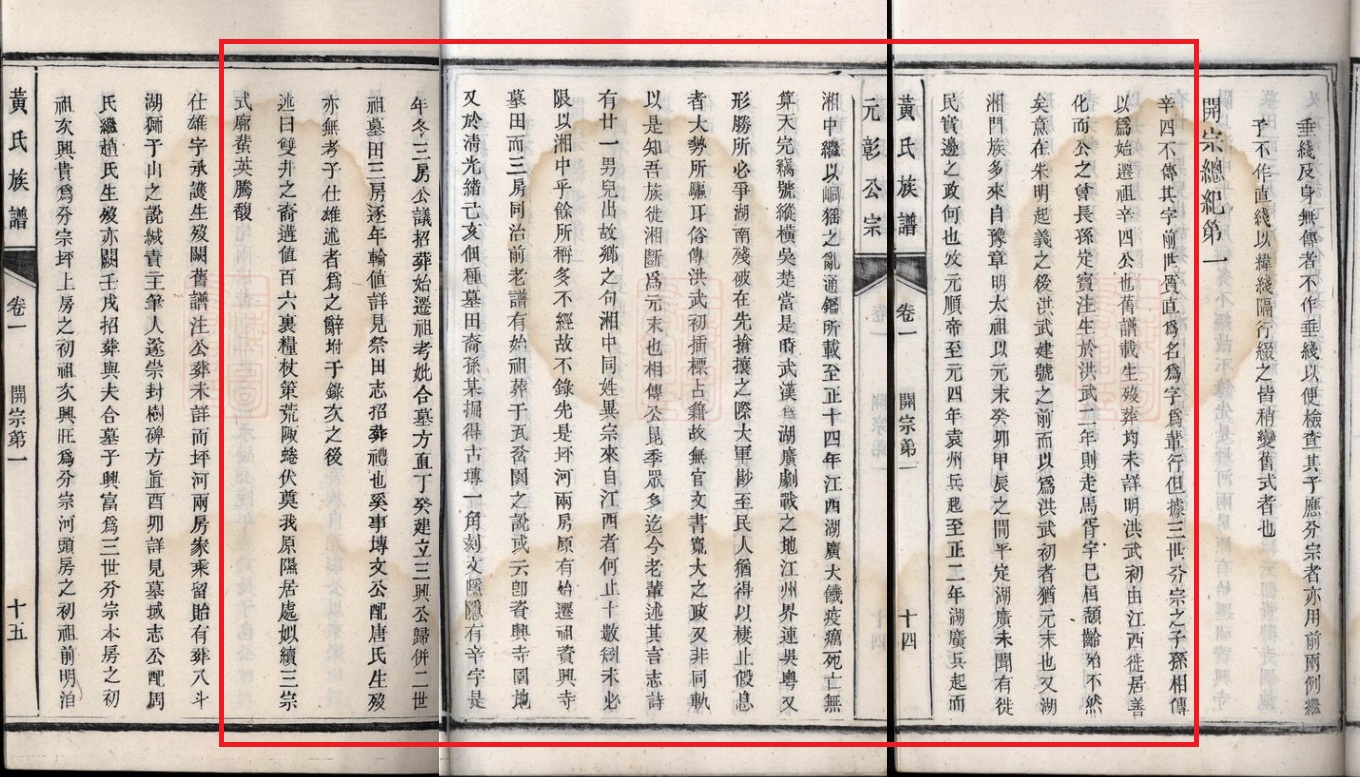 垂綫反身無傳者不作垂綫以便檢查其子應分宗者亦用前兩例繼
子不作直綫以緯綫隔行綴之皆稍變舊式者也
開宗總紀第一
辛四不傳其字前世質直爲名爲字爲輩行但據三世分宗之子孫相傳
以爲始遷祖辛四公也舊譜載生歿葬均未詳明洪武初由江西徙居善
化而公之曾長孫定寶注生於洪武二年則走馬胥宇已屆頹齡殆不然
矣熹在朱明起義之後洪武建號之前而以爲洪武初者猶元末也又湖
湘門族多來自豫章明太祖以元末癸卯甲辰之間平定湖廣未聞有徙
民實邊之政何也攷元順帝至元四年袁州兵起至正二年湖廣兵起而
黃氏族譜
卷一
開宗第一
十四
元彰公宗
湘中繼以峒猺之亂通鑑所載至正十四年江西湖廣大饑疫癘死亡無
算天完竊號縱橫吳楚當是時武漢爲湖廣劇戰之地江州界連吳粵又
形勝所必爭湖南殘破在先搶攘之際大軍尠至民人猶得以棲止假息
者大勢所驅耳俗傳洪武初插標占籍故無官文書寬大之政又非同軌
以是知吾族徙湘斷爲元末也相傳公昆季眾多迄今老輩述其言志詩
有廿一男兒出故鄉之句湘中同姓異宗來自江西者何止十數剏未必
限以湘中乎餘所稱多不經故不錄先是坪河兩房原有始遷祖資興寺
墓田而三房同治前老譜有始祖葬于瓦岔園之說或云卽資興寺園地
又於淸光緒己亥佃種墓田裔孫某掘得古塼一角刻文隱隱有辛字是
年冬三房公議招葬始遷祖考妣合墓方直丁癸建立三興公歸併二世
祖墓田三房逐年輪值詳見祭田志招葬禮也奚事塼文公配唐氏生歿
亦無考子仕雄述者爲之辭坿于錄次之後
述曰雙井之裔遘值百六裹糧杖策荒陬蜷伏奠我原隰居處姒續三宗
式廓蜚英騰馥
仕雄字承護生歿闕舊譜注公葬未詳而坪河兩房家乘留貽有葬八斗
湖獅于山之說緘責主筆人遂崇封樹碑方直酉卯詳見墓域志公配周
氏繼趙氏生歿亦闕壬戌招葬與夫合墓子興富爲三世分宗本房之初
祖次興貴爲分宗坪上房之初祖次興旺爲分宗河頭房之初祖前明洎
黃氏族譜
卷一
開宗第一
十五